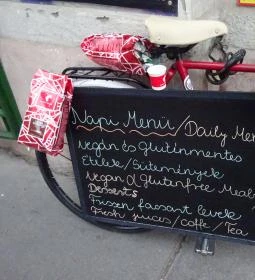 Napi Menü/Daily Men
Vegán és Gluténmentes
Ételek/Sütemények
Vegan & Glutenfree Meals
Desserts
Frissen facsart levek
Fresh juices/Coffe/Tea